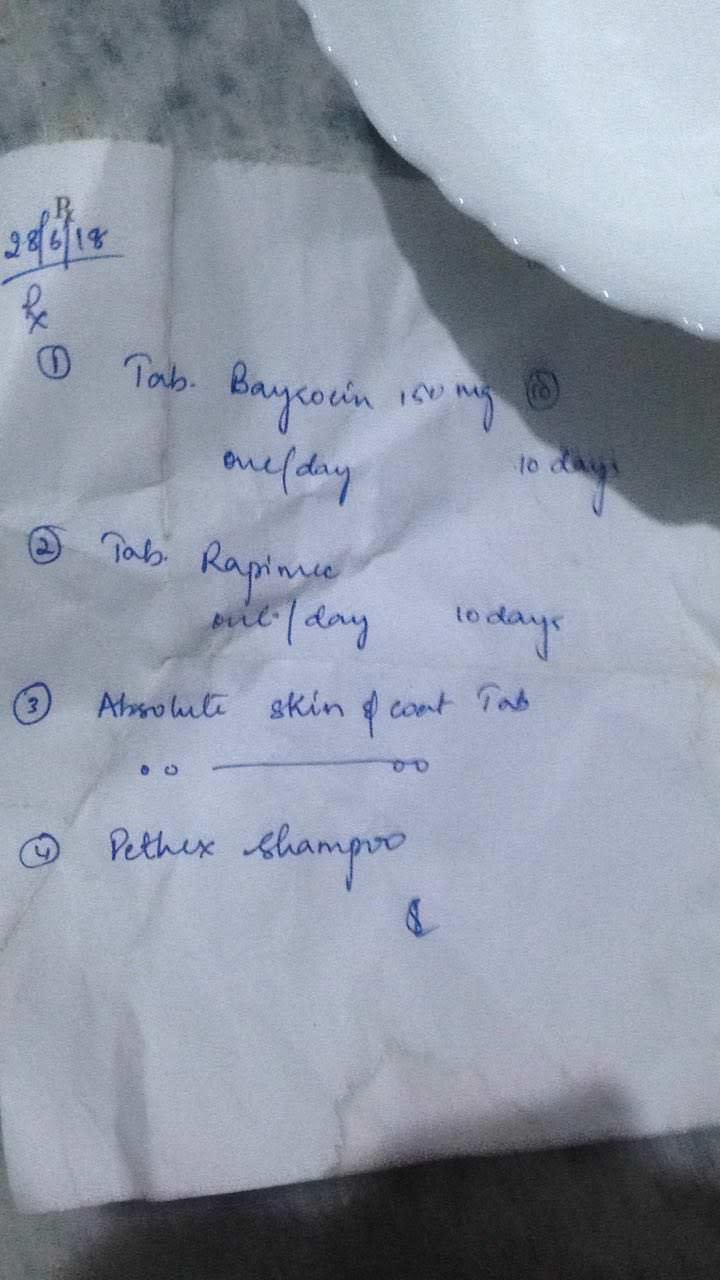 Rx
28/6/18
Rx
① Tab. Baycocin 150 mg ⑩
one/day 10 days
② Tab. Rapimec
one/day 10 days
③ Absolute skin & coat Tab
④ Pethex shampoo